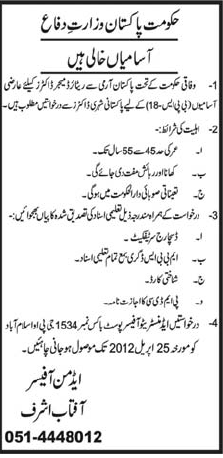 حکومت پاکستان وزارت دفاع
آسامیاں خالی ہیں
1- وفاقی حکومت کے تحت پاکستان آرمی سے ریٹائرڈ میجر ڈاکٹرز کیلئے عارضی
آسامیوں (بی پی ایس-18) کے لیے پاکستانی شہری ڈاکٹرز سے درخواستیں مطلوب ہیں۔
2- اہلیت کی شرائط:-
ا۔ عمر کی حد 45 سے 55 سال تک۔
ب۔ کھانا اور رہائش مفت دی جائے گی۔
ج۔ تعیناتی صوبائی دارالحکومت میں ہوگی۔
3- درخواست کے ہمراہ مندرجہ ذیل تعلیمی اسناد کی تصدیق شدہ کاپیاں بھجوائیں:-
ا۔ ڈسچارج سرٹیفکیٹ۔
ب۔ ایم بی بی ایس ڈگری بمع تمام تعلیمی اسناد۔
ج۔ شناختی کارڈ۔
د۔ پی ایم ڈی سی کا اجازت نامہ۔
4- درخواستیں ایڈمنسٹریٹو آفیسر پوسٹ بکس نمبر 1534 جی پی او اسلام آباد
کو مورخہ 25 اپریل 2012 تک موصول ہو جانی چاہئیں۔
ایڈمن آفیسر
آفتاب اشرف
051-4448012